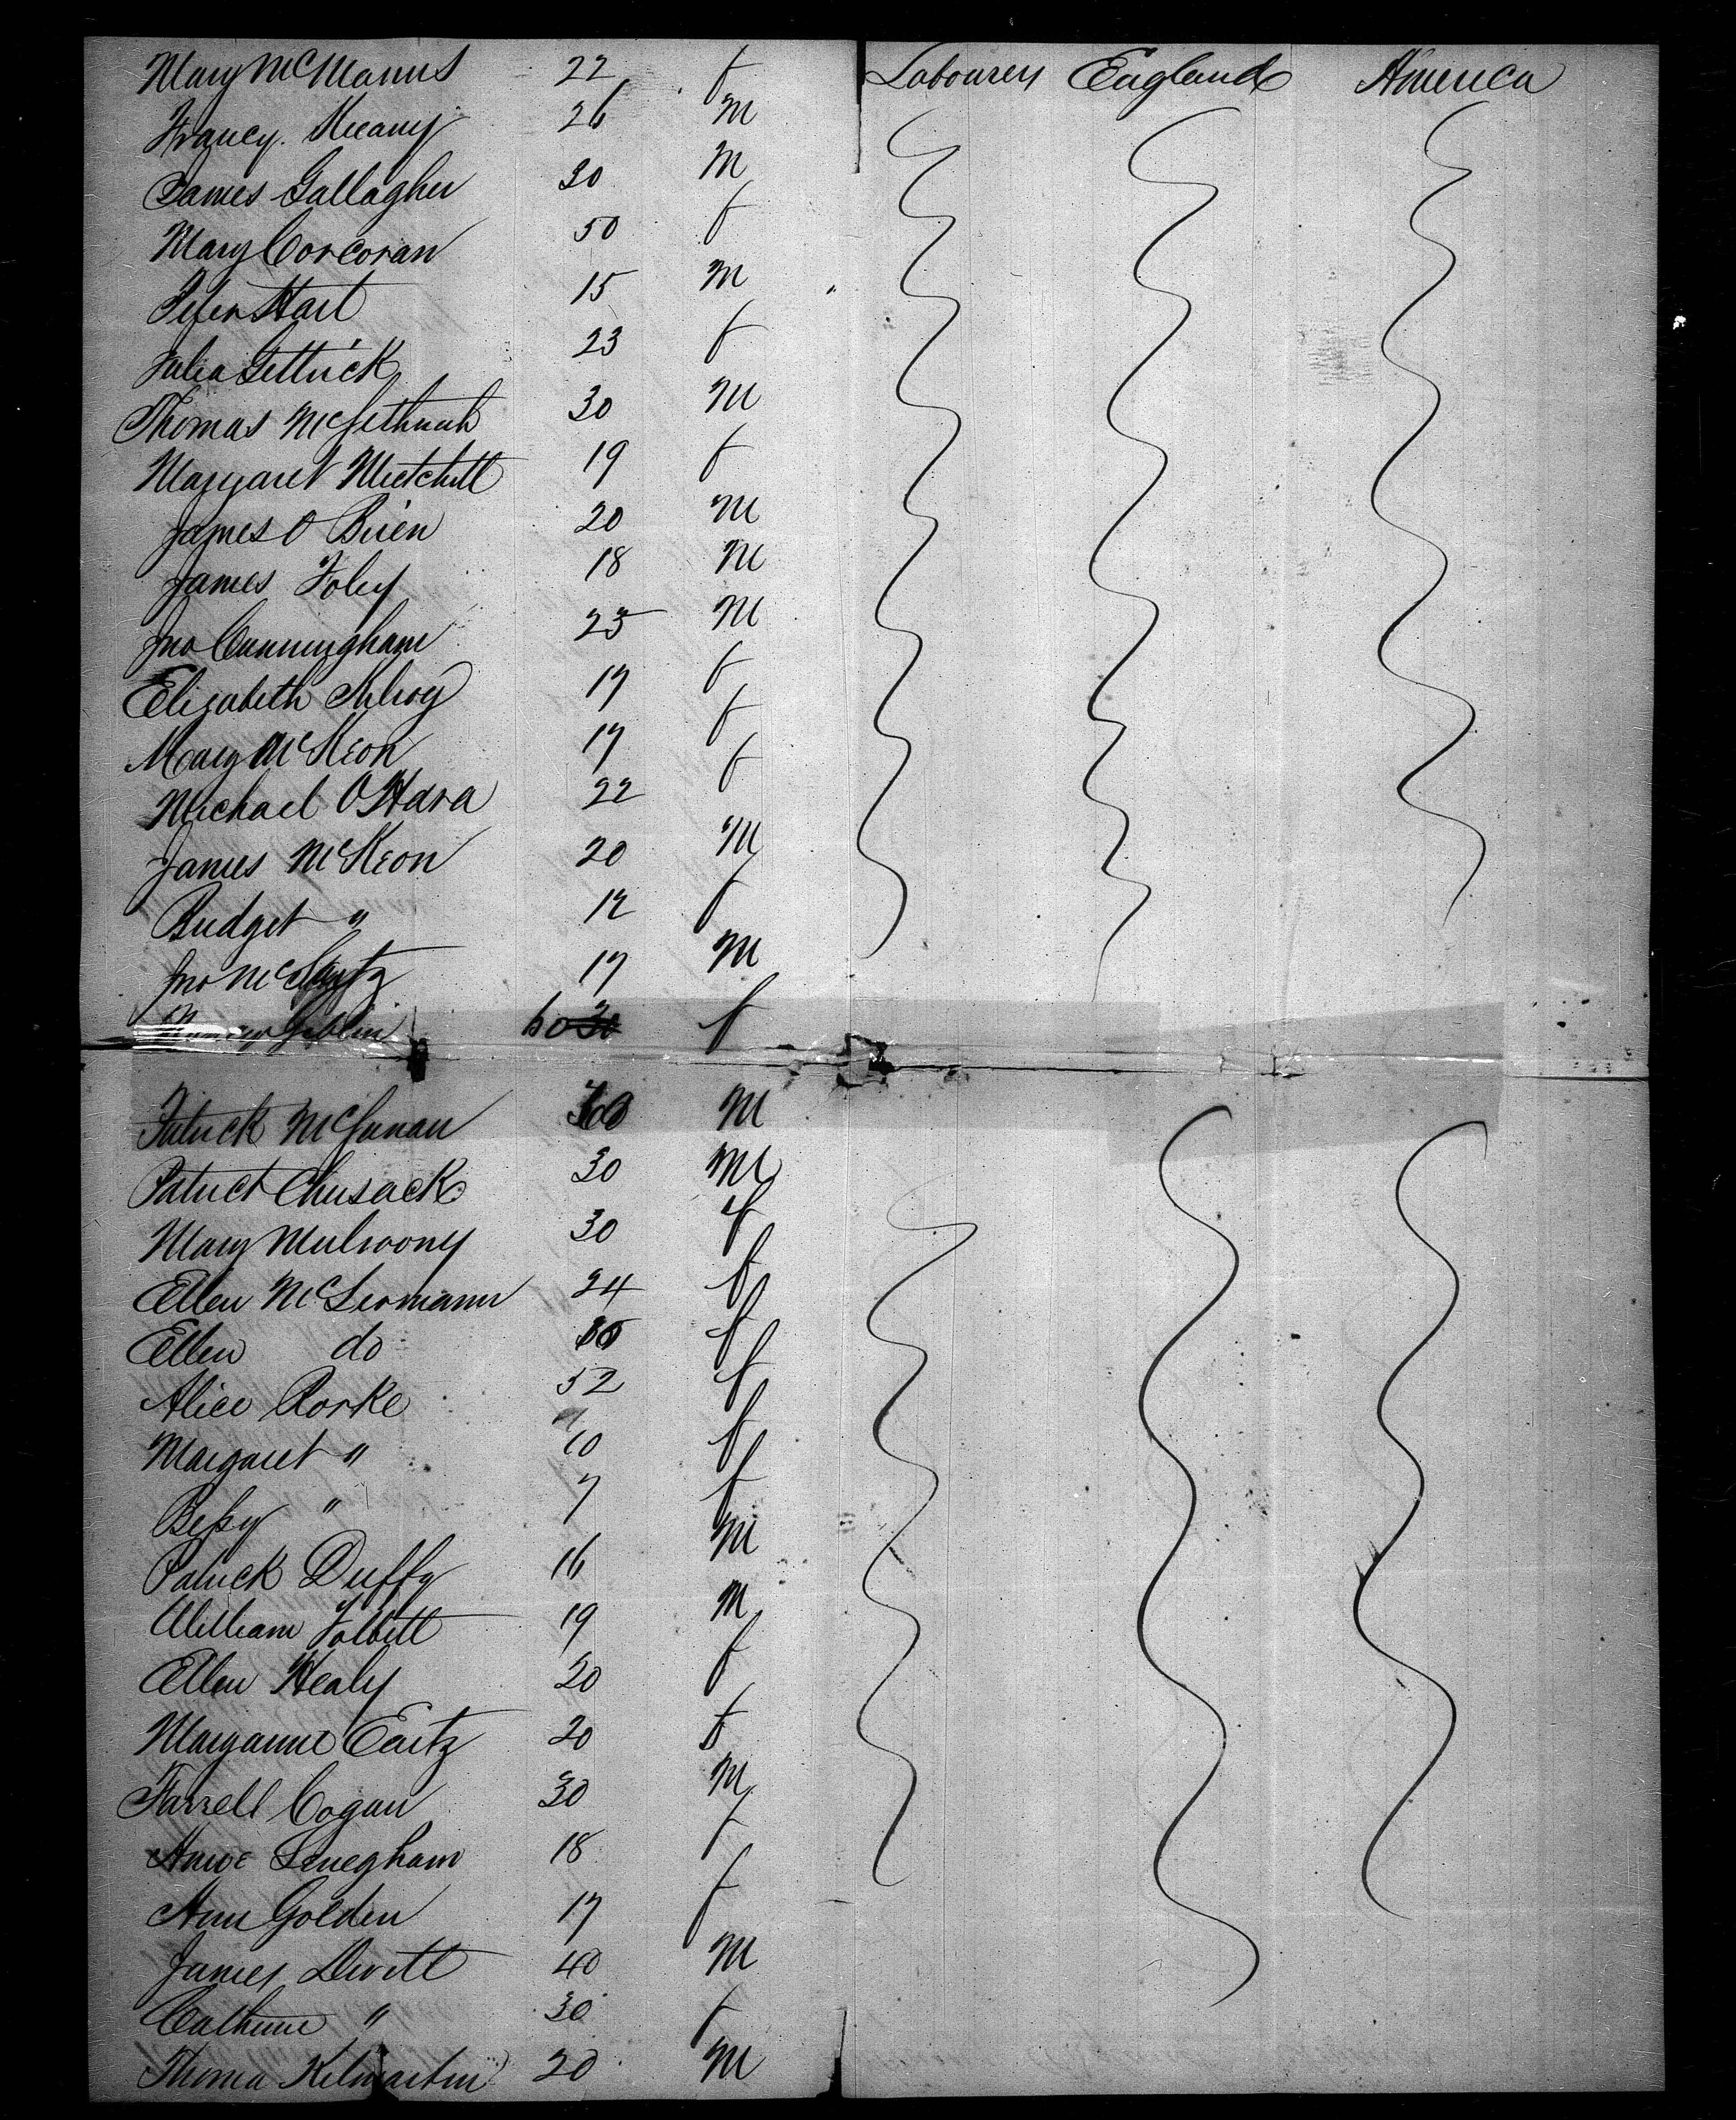 Mary McManus 22 f Labourers England America
Francy. Kieany 26 M
James Gallagher 30 M
Mary Corcoran 50 f
Peter Hart 15 M
Julia Gettrick 23 f
Thomas 30 M
Margaret Mietchell 19 f
James O Brien 20 M
James Foley 18 M
Jno Cunningham 25 M
Elizabeth 17 f
Mary McKeon 17 f
Michael O'Hara 22 f
James McKeon 20 M
Bridget " 12 f
Jno 17 M
Giblin 60 f
Patrick M
Patrick Chusack 30 M
Mary Mulroony 30 f
Ellen 24 f
Ellen do f
Alice Rorke 52 f
Margaret " 10 f
Beſsy " 7 f
Patrick Duffy 16 M
William 19 M
Ellen Healy 20 f
Maryanne 20 f
Farrell Cogan 30 M
Anne Lenegham 18 f
Ann Golden 17 f
James Devitt 40 M
Catherine " 30 f
Thomas Kilmartin 20 M